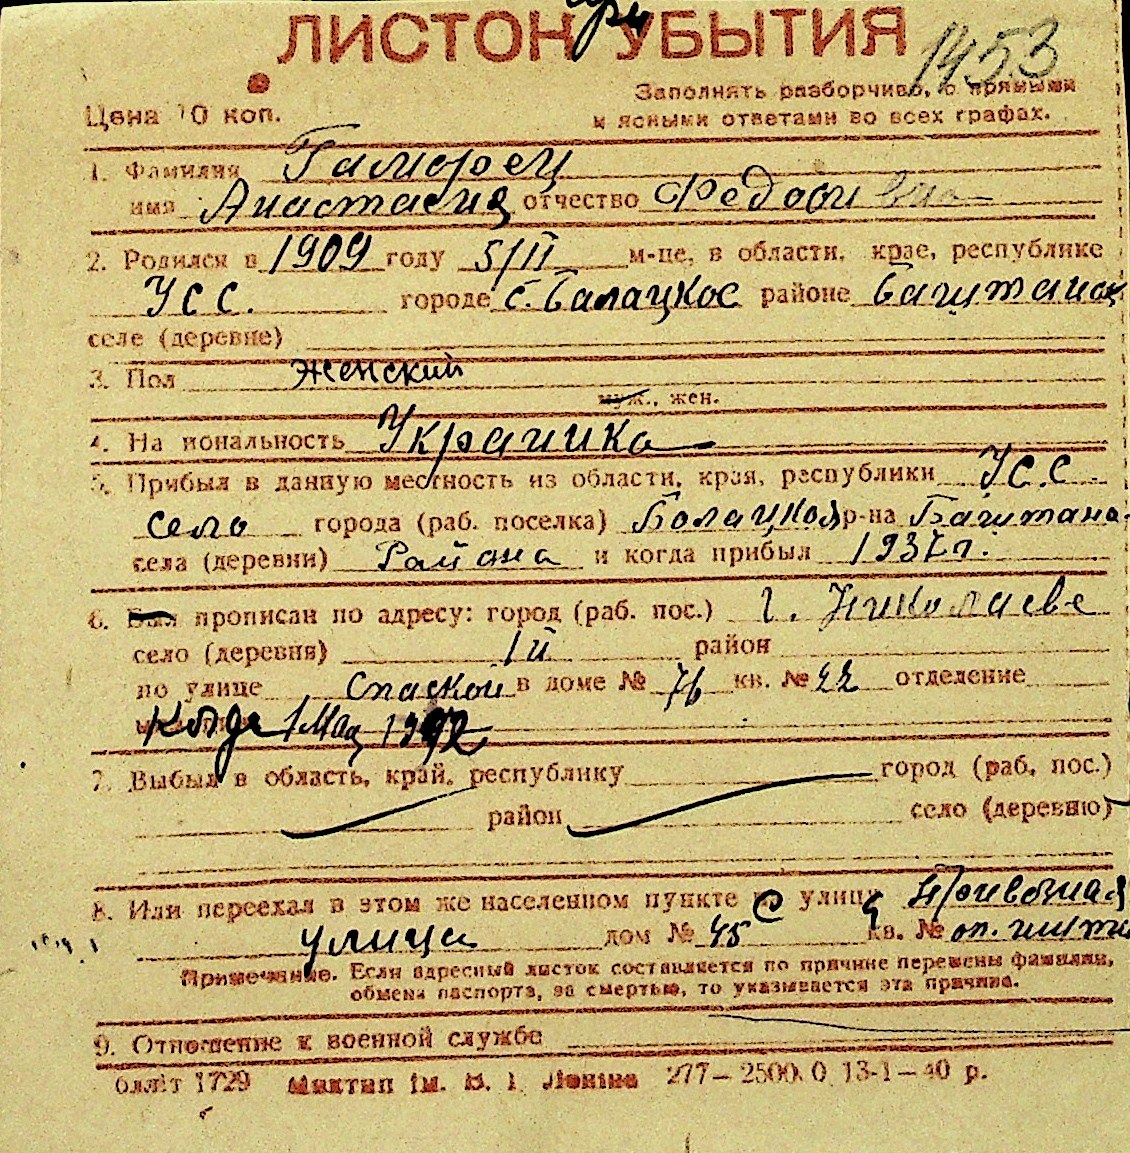 ЛИСТОК УБЫТИЯ
1453
Заполнять разборчиво, с прямыми
Цена 10 коп.
и ясными ответами во всех графах.
1. Фамилия
имя Анастасия отчество Федоровна
2. Родился в 1909 году 5/II м-це, в области, крае, республике
УСС. городе с. Балацкое районе Баштанск
селе (деревне)
3. Пол Женский
муж., жен.
4. Национальность Украинка
5. Прибыл в данную местность из области, края, республики УСС.
село города (раб. поселка) Болацкоя р-на Баштана
села (деревни) Района и когда прибыл 1937 г.
6. Был прописан по адресу: город (раб. пос.) г. Николаеве
село (деревня) III район
по улице Спаской в доме № 76 кв. № 22 отделение
Когда 1 Мая 1942
7. Выбыл в область, край, республику город (раб. пос.)
район село (деревню)
8. Или переехал в этом же населенном пункте С улица
улица дом № 45 кв. №
Примечание. Если адресный листок составляется по причине перемены фамилии,
обмена паспорта, за смертью, то указывается эта причина.
9. Отношение к военной службе
обллiт 1729 Миктип iм. В. I. Ленiна 277—2500. 0. 13-1—40 р.